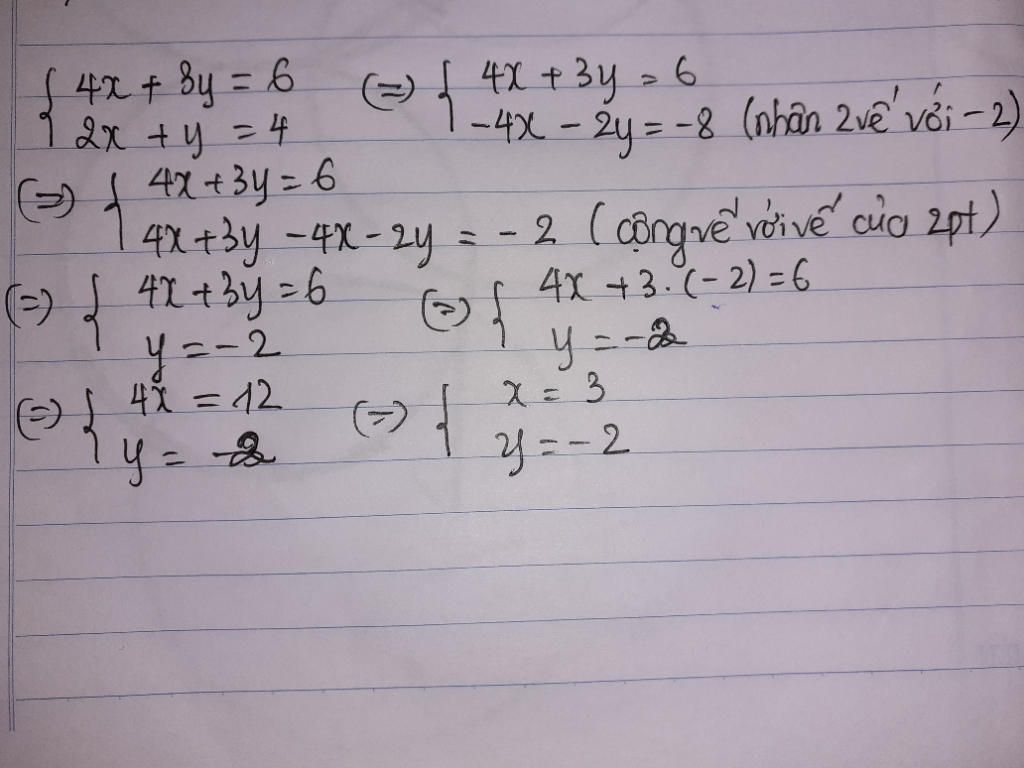 { 4x + 3y = 6 (=) { 4x + 3y = 6
2x + y = 4 -4x - 2y = -8 (nhân 2 vế với -2)
(=) { 4x + 3y = 6
4x + 3y - 4x - 2y = -2 (cộng vế với vế của 2pt)
(=) { 4x + 3y = 6 (=) { 4x + 3.(-2) = 6
y = -2 y = -2
(=) { 4x = 12 (=) { x = 3
y = -2 y = -2